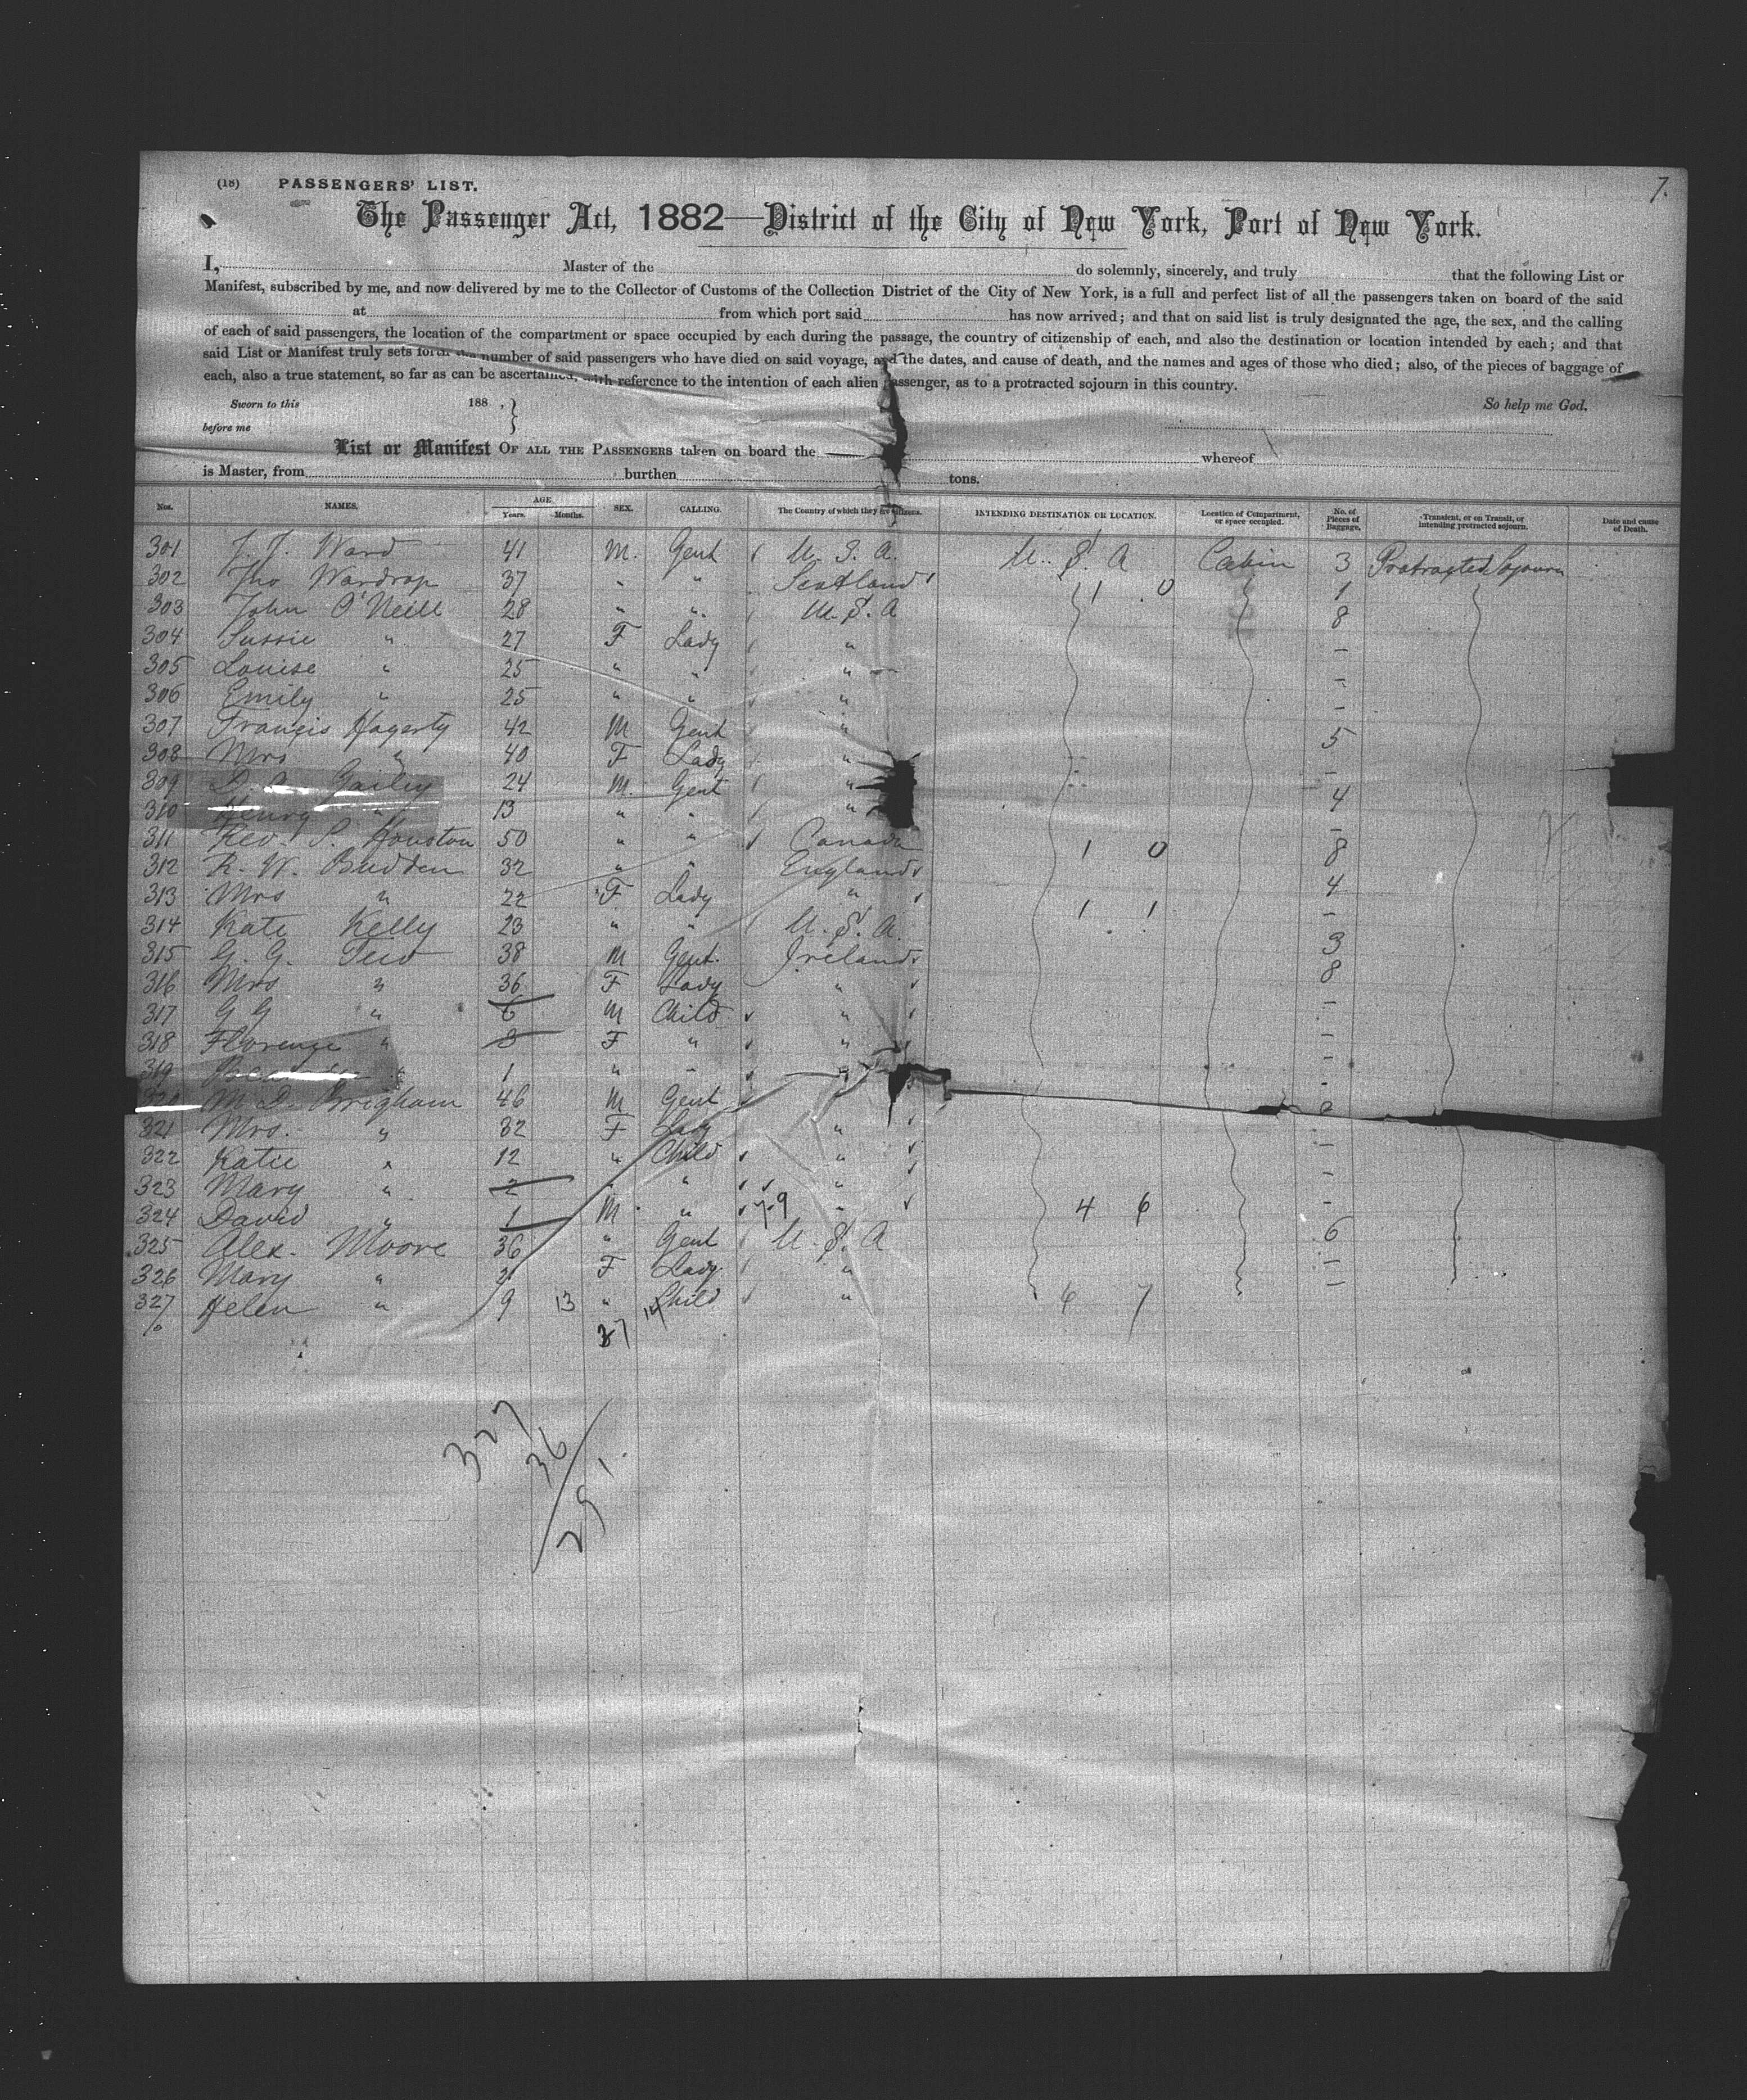 7.
(18) PASSENGERS' LIST.
The Passenger Act, 1882—District of the City of New York, Port of New York.
I, Master of the do solemnly, sincerely, and truly that the following List or
Manifest, subscribed by me, and now delivered by me to the Collector of Customs of the Collection District of the City of New York, is a full and perfect list of all the passengers taken on board of the said
at from which port said has now arrived; and that on said list is truly designated the age, the sex, and the calling
of each of said passengers, the location of the compartment or space occupied by each during the passage, the country of citizenship of each, and also the destination or location intended by each; and that
said List or Manifest truly sets forth the number of said passengers who have died on said voyage, and the dates, and cause of death, and the names and ages of those who died; also, of the pieces of baggage of
each, also a true statement, so far as can be ascertained, with reference to the intention of each alien passenger, as to a protracted sojourn in this country.
Sworn to this 188 , So help me God.
before me
List or Manifest OF ALL THE PASSENGERS taken on board the whereof
is Master, from burthen tons.
Nos. NAMES. AGE Years. Months. SEX. CALLING. The Country of which they are citizens. INTENDING DESTINATION OR LOCATION. Location of Compartment, or space occupied. No. of Pieces of Baggage. Transient, or on Transit, or intending protracted sojourn. Date and cause of Death.
301 Ward 41 M. Gent U. S. A. U. S. A Cabin 3 Protracted Sojourn
302 Tho Wardrop 37 " " Scotland 1 0 1
303 John O'Neill 28 " " U. S. A 8
304 Sussie " 27 F Lady " -
305 Louise " 25 " " " -
306 Emily " 25 " " " -
307 Francis Hagerty 42 M Gent " 5
308 Mrs " 40 F Lady " -
309 D. Gailey 24 M. Gent " 4
310 Henry " 13 " " " -
311 Rev. S. Houston 50 " " Canada 1 0 8
312 R. W. Budden 32 " " England 4
313 Mrs " 22 F Lady " 1 1 -
314 Kate Kelly 23 " " U. S. A. 3
315 G. G. 38 M Gent. Ireland 8
316 Mrs " 36 F Lady " -
317 G G " 6 M Child " -
318 Florence " 3 F " " -
319 1 " "
320 M. D. Brigham 46 M Gent
321 Mrs. " 32 F Lady " -
322 Katie " 12 " Child " -
323 Mary " 2 " " " -
324 David " 1 M " 7-9 " 4 6
325 Alex. Moore 36 " Gent U. S. A 6
326 Mary " F Lady " -
327 Helen " 9 13 " Child " 6 7
327
36
291